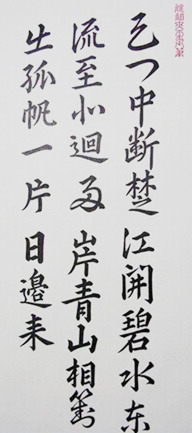 天门中断楚江開碧水东
流至此迴两岸青山相對
出孤帆一片日邊来